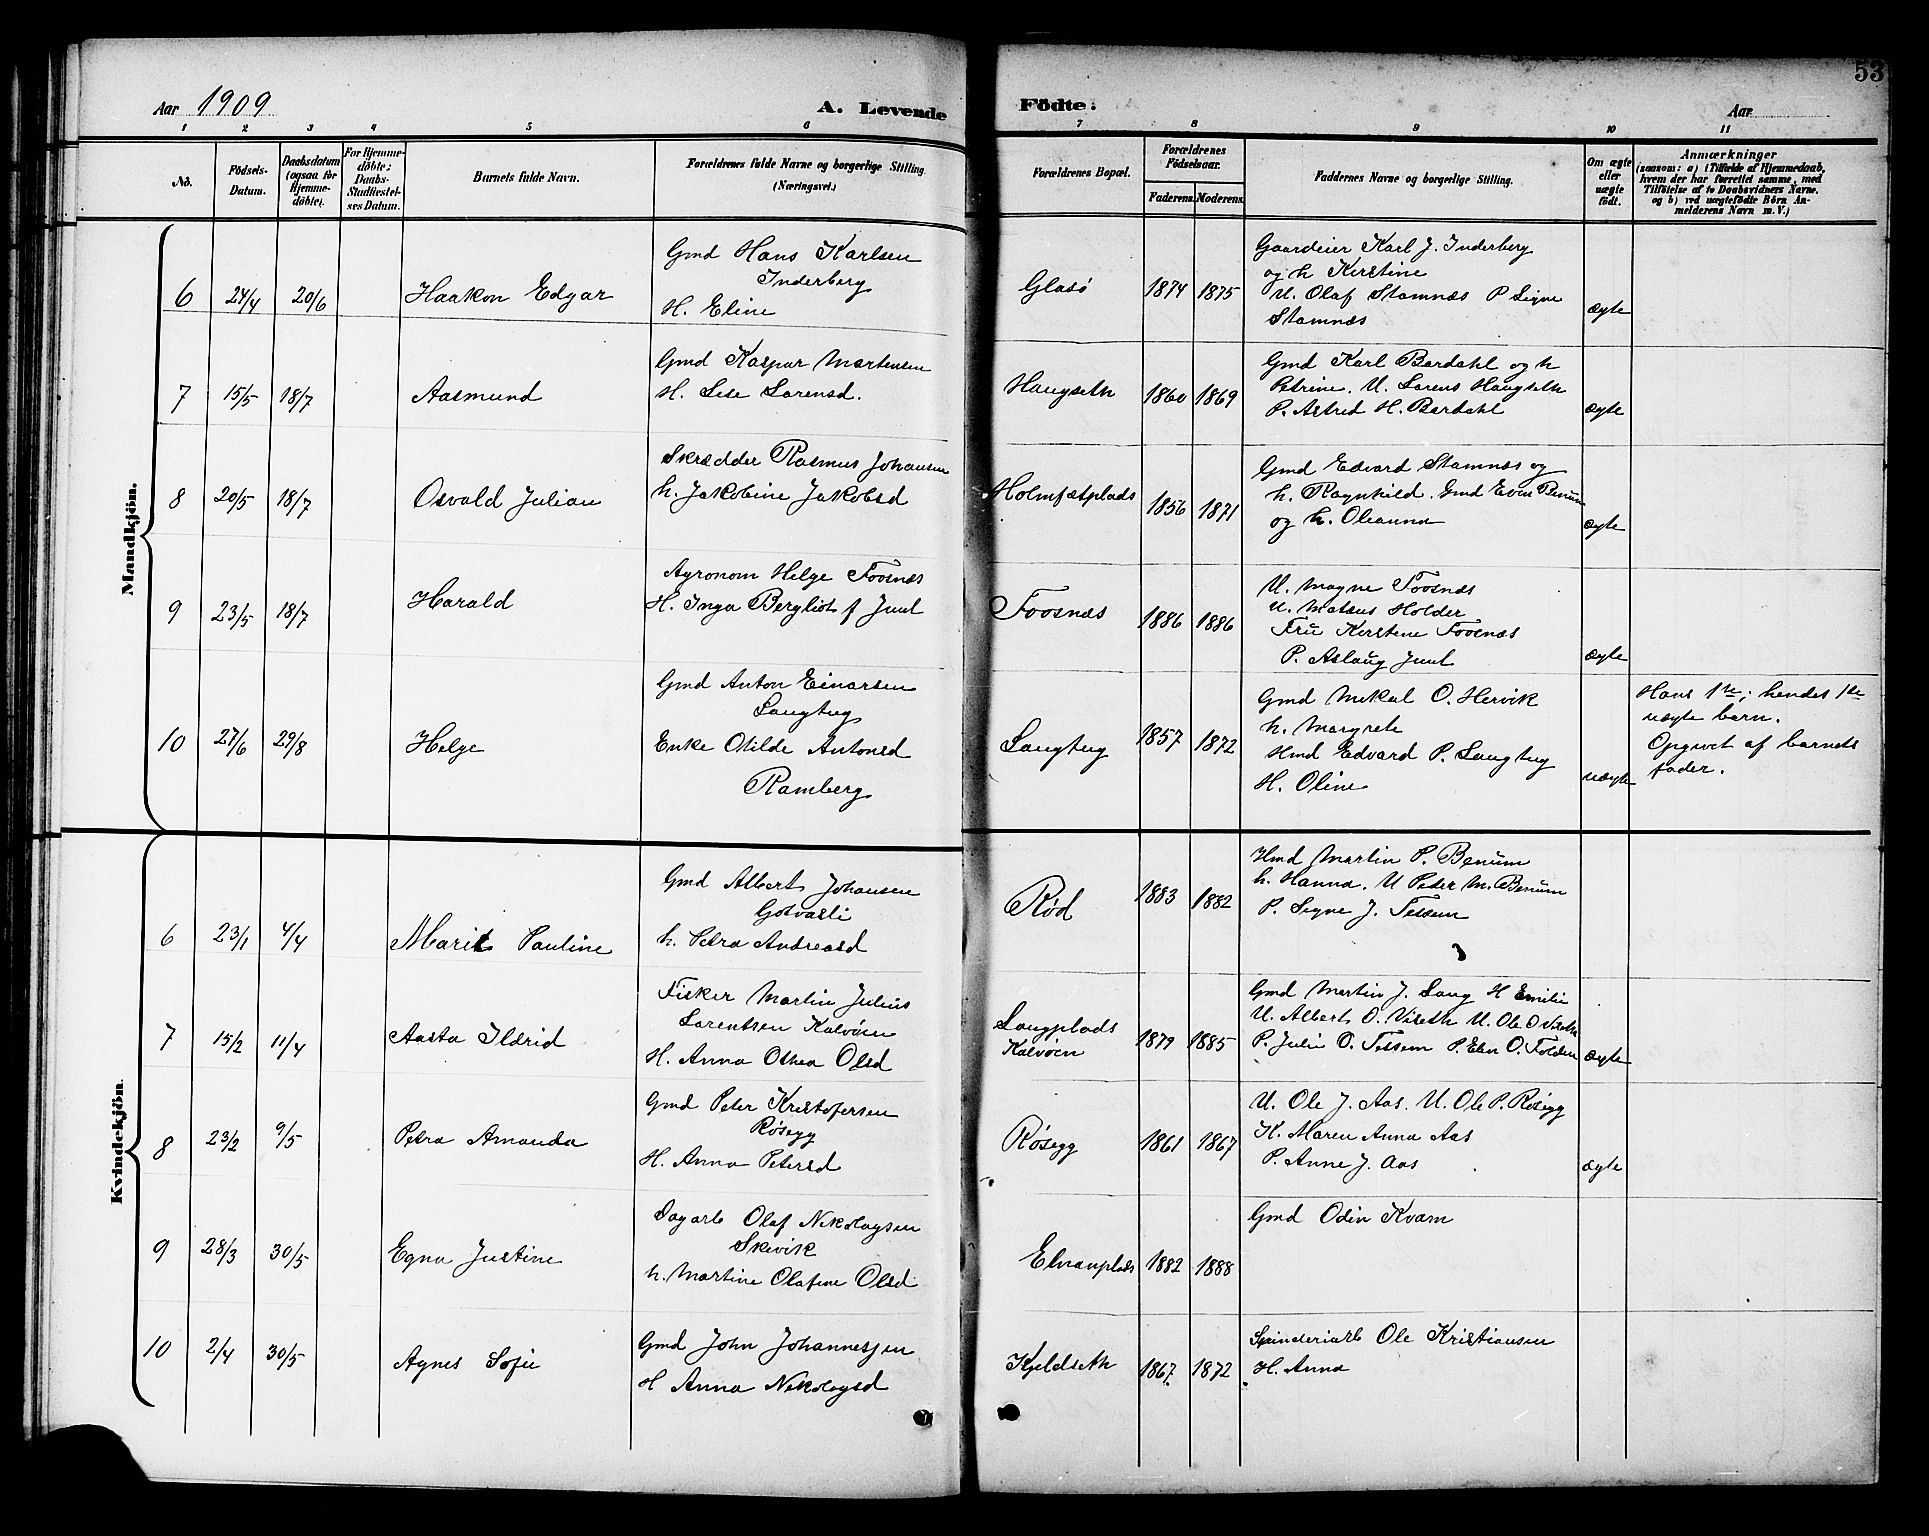 53
Aar 1909
A. Levende
Födte.
Aar
1 2 3 4 5 6 7 8 9 10 11
No.
Födsels-
Datum.
Daabsdatum
(ogsaa for
Hjemme-
döbte).
For Hjemme-
döbte;
Daabs-
Stadfæstel-
ses Datum.
Barnets fulde Navn.
Forældrenes fulde Navne og borgerlige Stilling.
(Næringsvei.)
Forældrenes Bopæl.
Forældrenes
Födselsaar.
Faderens. Moderens.
Faddernes Navne og borgerlige Stilling.
Om ægte
eller
uægte
födt.
Anmærkninger
(saasom: a) i Tilfælde af Hjemmedaab,
hvem der har forrettet samme, med
Tilföielse af to Daabsvidners Navne.
og b) ved uægtefödte Börn An-
melderens Navn m. V.)
Mandkjön.
6 24/4 20/6 Haakon Edgar
Gmd Hans Karlsen
Inderberg
H. Eline
Glasø 1874 1875
Gaardeier Karl J. Inderberg
og h Kerstine
U. Olaf Stamnæs P Signe
Stamnæs
ægte
7 15/5 18/7 Aasmund
Gmd Kaspar Martensen
H. Lise Lorensd.
Haugseth 1860 1869
Gmd Karl Bardahl og h
Petrine. U. Lorens Haugseth
P. Astred H. Bardahl
ægte
8 20/5 18/7 Osvald Julian
Skrædder Rasmus Johansen
h. Jakobine Jakobsd
Holmsætplads 1856 1871
Gmd Edvard Stamnæs og
h. Ragnhild. Gmd Even Benum
og h. Oleanna
ægte
9 23/5 18/7 Harald
Agronom Helge Foosnæs
H. Inga Bergliot f Juul
Foosnæs 1886 1886
U. Magne Foosnæs
U. Mateus Holder
Fru Kerstine Foosnæs
P. Aslaug Juul
ægte
10 27/6 29/8 Helge
Gmd Anton Einarsen
Langtug
Enke Otilde Antonsd
Ramberg
Langtug 1857 1872
Gmd Mekal O. Hervik
h. Margrete
Hmd Edvard P. Langtug
H. Oline
uægte
Hans 1te; hendes 1te
uægte barn.
Opgivet af barnets
fader.
Kvindekjön.
6 23/1 4/4 Marit Pauline
Gmd Albert Johansen
Golvasli
h. Petra Andreasd
Rød 1883 1882
Hmd Martin P. Benum
h. Hanna. U Peder M. Benum
P. Signe J. Tessem
7 15/2 11/4 Aasta Ildrid
Fisker Martin Julius
Lorentsen Kalvøen
H. Anna Othea Olsd
Langplads
Kalvøen 1879 1885
Gmd Martin J. Lang H Emilie
U. Albert O. Viseth U. Ole O Viseth
P. Julie O. Tessem P. Elen O. Folden
ægte
8 23/2 9/5 Petra Amanda
Gmd Peter Kristofersen
Røsegg
H. Anna Petersd
Røsegg 1861 1867
U. Ole J. Aas. U. Ole P. Røsegg
K. Maren Anna Aas
P. Anne J. Aas
ægte
9 28/3 30/5 Egna Justine
Dagarb Olaf Nekolaysen
Skevik
h. Martine Olafine Olsd
Elvranplads 1882 1888
Gmd Odin Kvam
10 2/4 30/5 Agnes Sofie
Gmd John Johannesjen
H Anna Nekolaysd
Kjeldseth 1867. 1872
Spinderiarb Ole Kristiansen
H. Anna